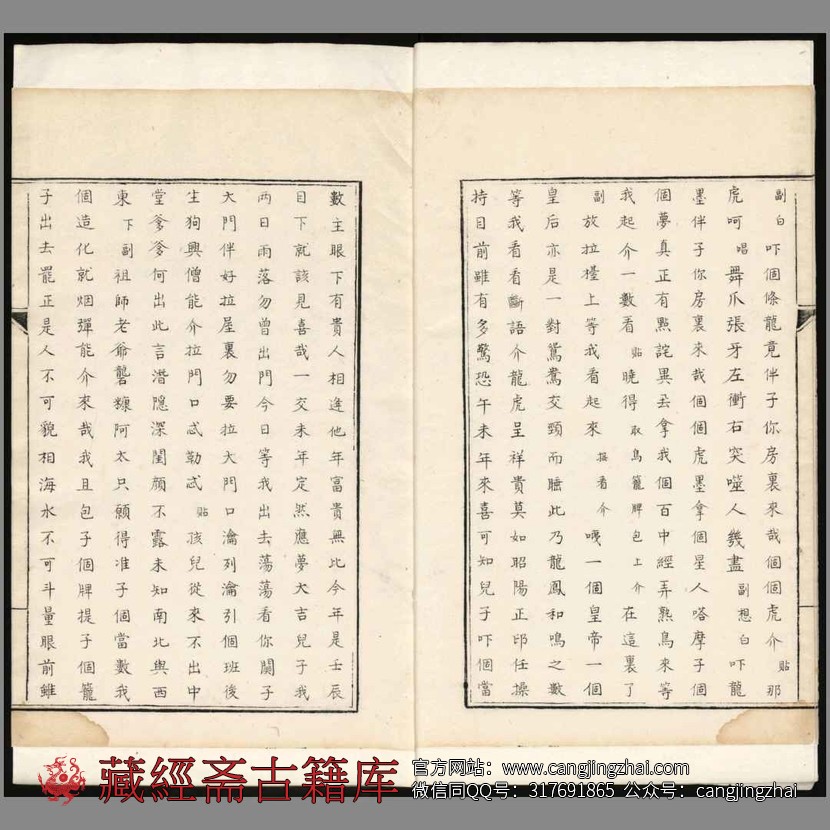 副白吓個條龍竟伴子你房裏來哉個個虎介貼那
虎呵唱舞爪張牙左衝右突噬人幾盡副想白吓龍
墨伴子你房裏來哉個個虎墨拿個星人嗒摩子個
個夢真正有點詫異厾拿我個百中經弄熟鳥來等
我起介一數看貼曉得取鳥籠牌包上介在這裏了
副放拉檯上等我看起來摸看介咦一個皇帝一個
皇后亦是一對鴛鴦交頸而睡此乃龍鳳和鳴之數
等我看看斷語介龍虎呈祥貴莫如昭陽正印任操
持目前雖有多驚恐午未年來喜可知兒子吓個當
數主眼下有貴人相逢他年富貴無比今年是壬辰
目下就該見喜哉一交未年定然應夢大吉兒子我
两日雨落勿曾出門今日等我出去蕩蕩看你關子
大門伴好拉屋裏勿要拉大門口瀹列瀹引個班後
生狗與僧能介拉門口忒勒忒貼孩兒從來不出中
堂爹爹何出此言潜隱深閨顔不露未知南北與西
東下副祖師老爺礱糠阿太只願得准子個當數我
個造化就烟彈能介來哉我且包子個牌提子個籠
子出去罷正是人不可貌相海水不可斗量眼前雖
藏經斋古籍库
官方网站：www.cangjingzhai.com
微信同QQ号：317691865 公众号：cangjingzhai